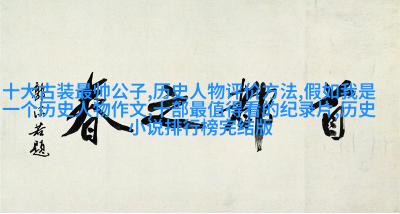 十大古装最帅公子,历史人物评价方法,假如我是
一个历史人物作文,十部最值得看的纪录片,历史
小说排行榜完结版
首都之春
郭沫若题